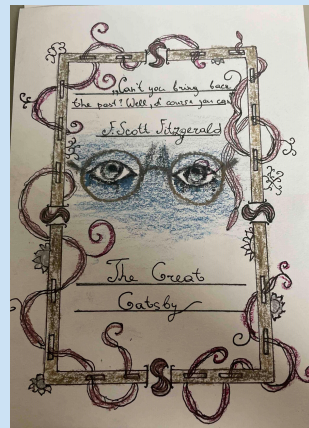 „Can't you bring back
the past? Well, of course you can
F. Scott Fitzgerald
The Great
Gatsby